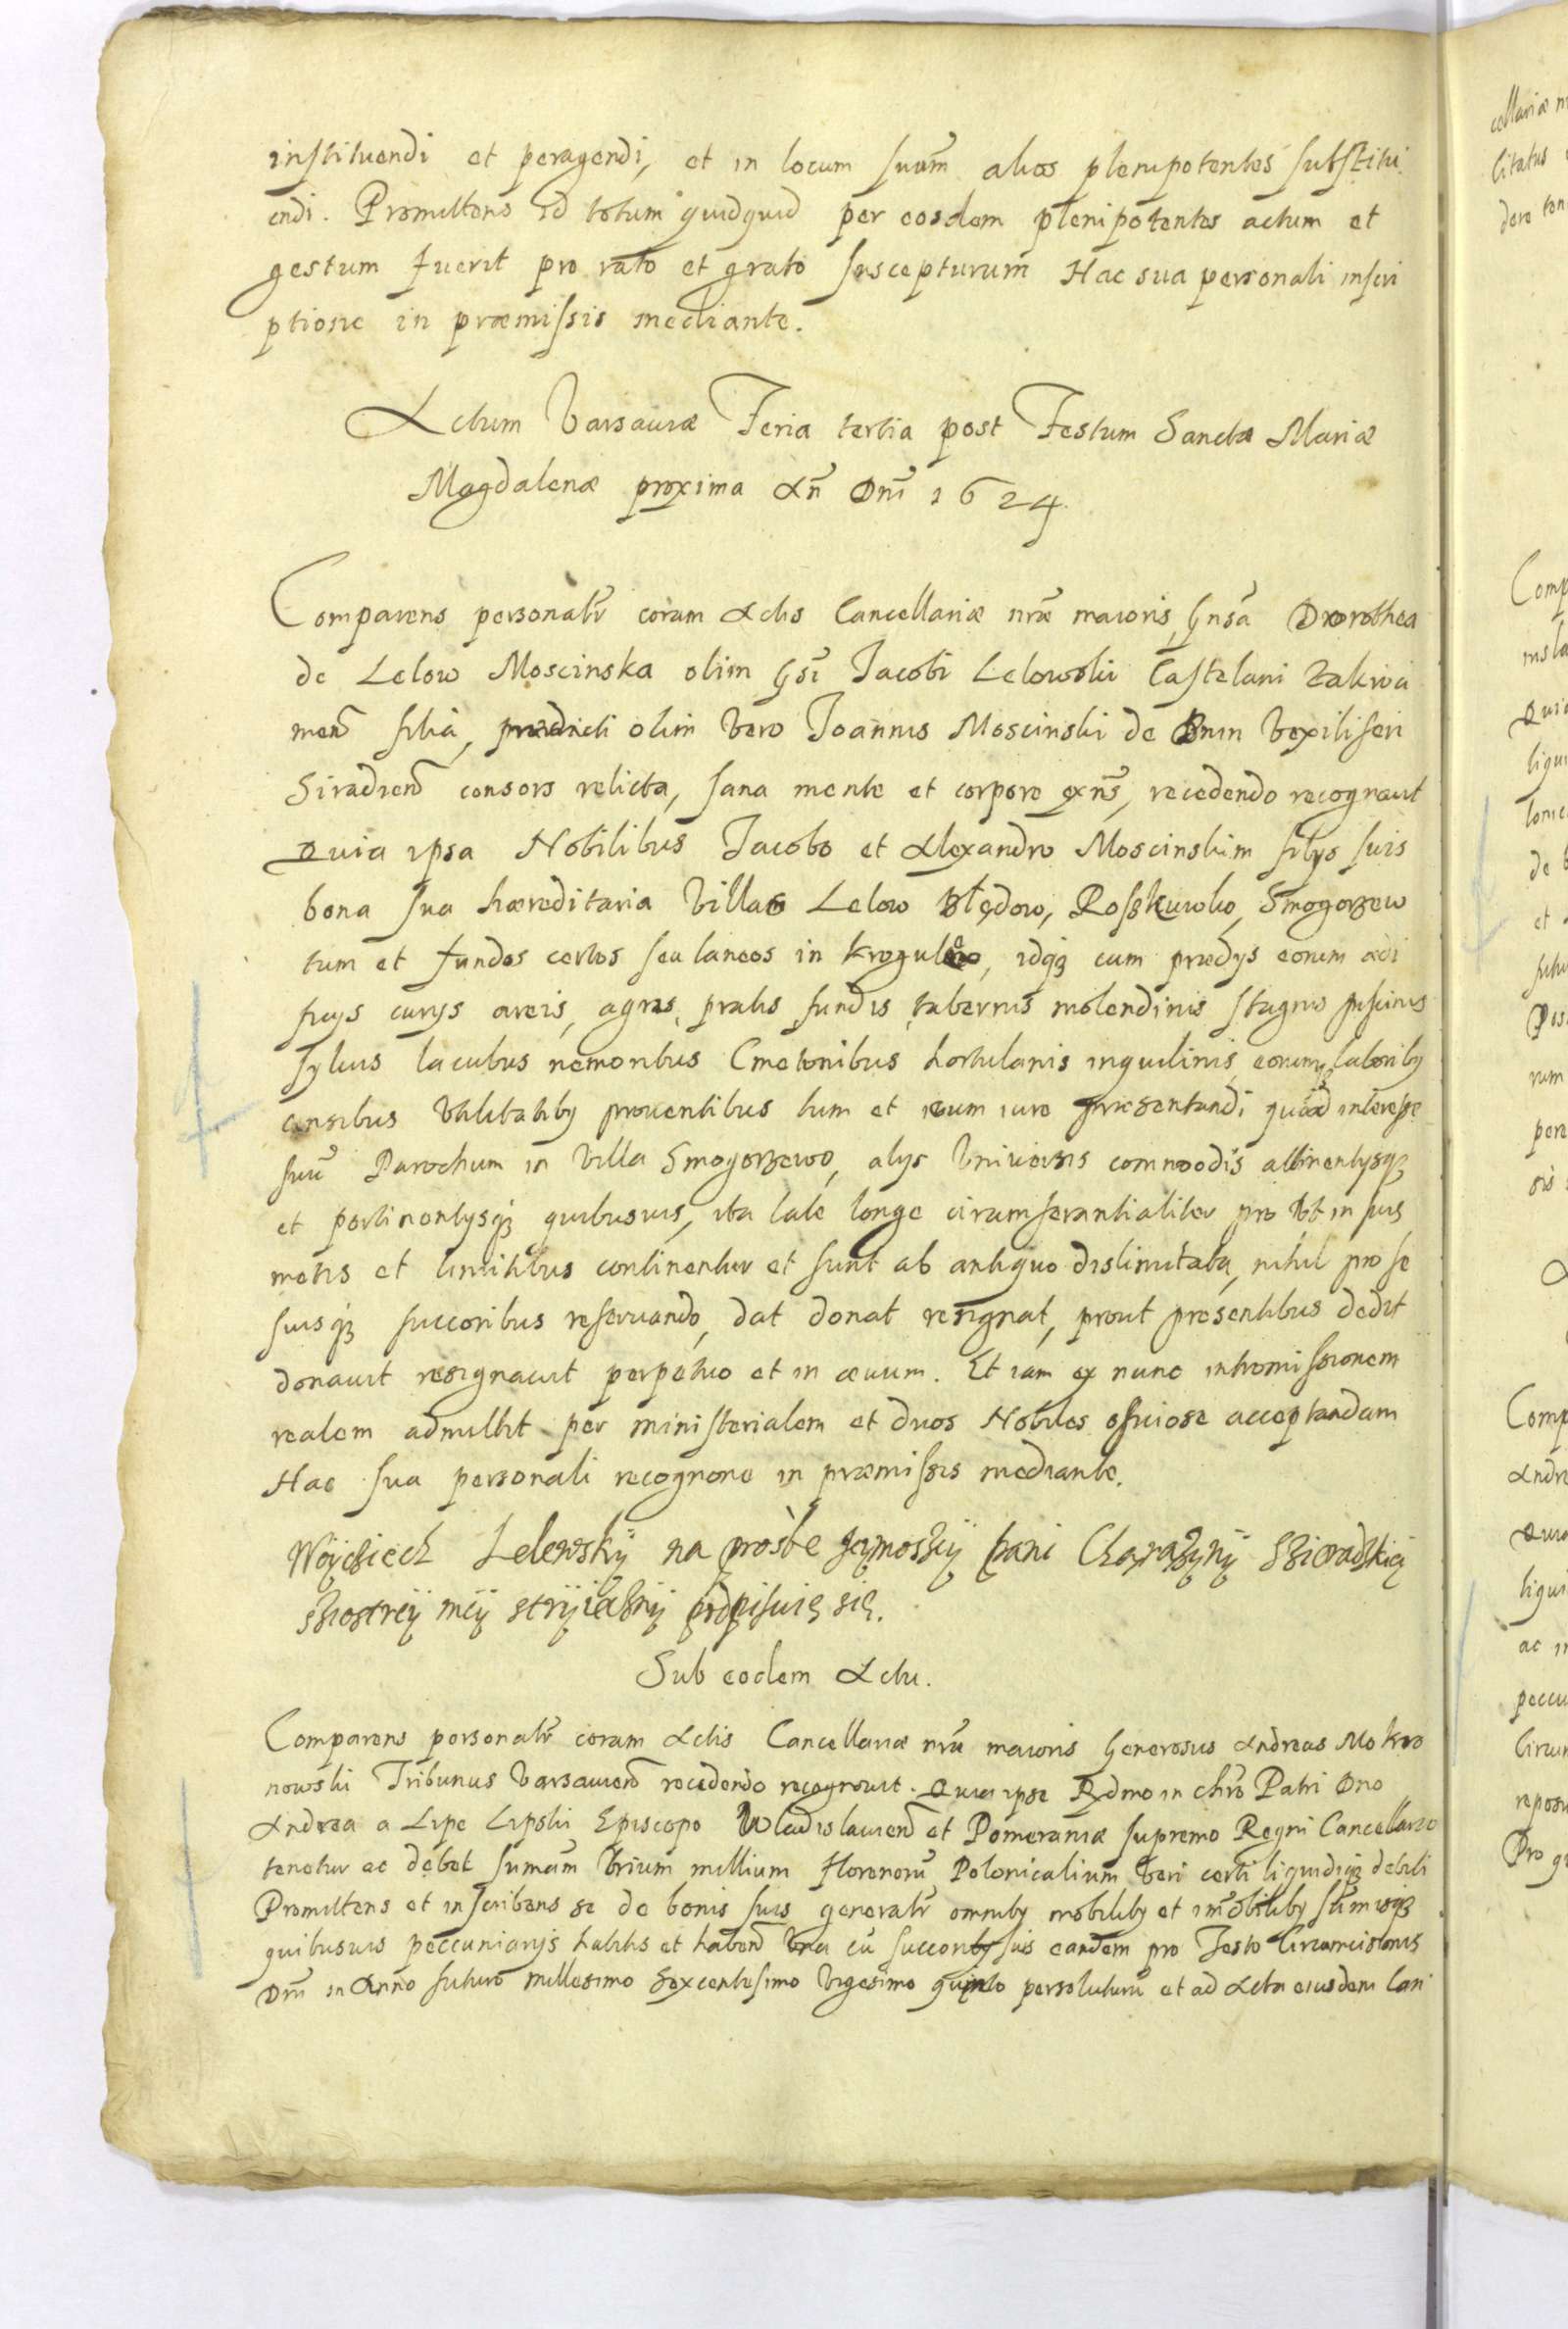 instituendi et peragendi, et in locum suum alios plenipotentes substitu
endi. Promittens id totum quidquid per eosdem plenipotentes actum et
gestum fuerit pro rato et grato suscepturum Hac sua personali inscri
ptione in præmissis mediante.
Actum Varsaviæ Feria tertia post Festum Sanctæ Mariæ
Magdalenæ proxima An̄ Dn̄i 1624.
Comparens personalr̄ coram Actis Cancellariæ nr̄æ maioris, Gnsā Dorothea
de Lelow Moscinska olim Gsī Jacobi Lelowski Castelani Zakroci
men̄ filia, prædicti olim vero Joannis Moscinski de Bnin Vexiliferi
Siradien̄ consors relicta, sana mente et corpore exns̄, recedendo recognouit
Quia ipsa Nobilibus Jacobo et Alexandro Moscinskim filys suis
bona sua hæreditaria Villas Lelow Błędow, Roszkuwko, Smogorzew
tum et fundos certos seu laneos in Krogulewo, idq3 cum prædys eorum ædi
ficys curys areis, agris, pratis fundis, tabernis molendinis stagnis piscinis
syluis lacubus nemoribus Cmetonibus hortulanis inquilinis, eorumq3 laborib9
censibus vtilitatib9 prouentibus tum et cum iure præsentandi quoad interesse
suū Parochum in Villa Smogorzewo, alys Vniuersis commodis attinentysq3
et pertinentysq3 quibusuis, ita late longe circumferentialiter pro vt in suis
metis et limitibus continentur et sunt ab antiquo dislimitata, nihil pro se
suisq3 succoribus reseruando, dat donat resignat, prout præsentibus dedit
donauit resignauit perpetuo et in æuum. Et iam ex nunc intromissionem
realem admittit per ministerialem et duos Nobiles officiose acceptandam
Hac sua personali recognone in præmissis mediante.
Woyciech Lelewskÿ na prosbe Jeymosciÿ pani Chorązÿnÿ Sziradzkieÿ
sziostreÿ meÿ strÿieczneÿ podpisuię się.
Sub eodem Actu.
Comparens personalr̄ coram Actis Cancellariæ nr̄æ maioris Generosus Andreas Mokro
nowski Tribunus Varsauien̄ recedendo recognouit. Quia ipse Rdmo in Chro Patri Dno
Andrea a Lipe Lipski Episcopo Wladislauien̄ et Pomeraniæ supremo Regni Cancellario
tenetur ac debet sumam trium millium florenorū Polonicalium veri certi liquidiq3 debiti
Promittens et inscribens se de bonis suis generalr̄ omnib9 mobilib9 et im̄obilib9 sum̄isq3
quibusuis peccuniarÿs habitis et haben̄ vna cū succorib9 suis eandem pro Festo Circumcisionis
Dn̄i in Anno futuro millesimo sexcentesimo vigesimo quinto persoluturū et ad Acta eiusdem Can